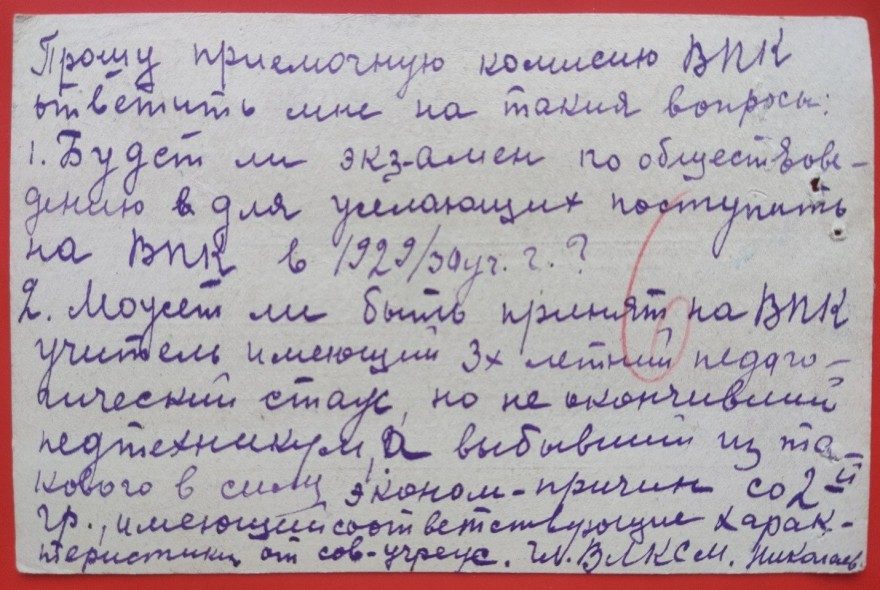 Прошу приемочную комисию ВПК
ответить мне на такия вопросы:
1. Будет ли экз-амен по обществове-
дению в для желающих поступить
на ВПК в 1929/30 уч. г.?
2. Может ли быть принят на ВПК
учитель имеющий 3х летний педаго-
гический стаж, но не окончивший
педтехникум, а выбывший из та-
кового в силу эконом-причин со 2-й
гр., имеющий соответствующие харак-
теристики от сов-учреж. Чл. ВЛКСМ. Николаев.
6